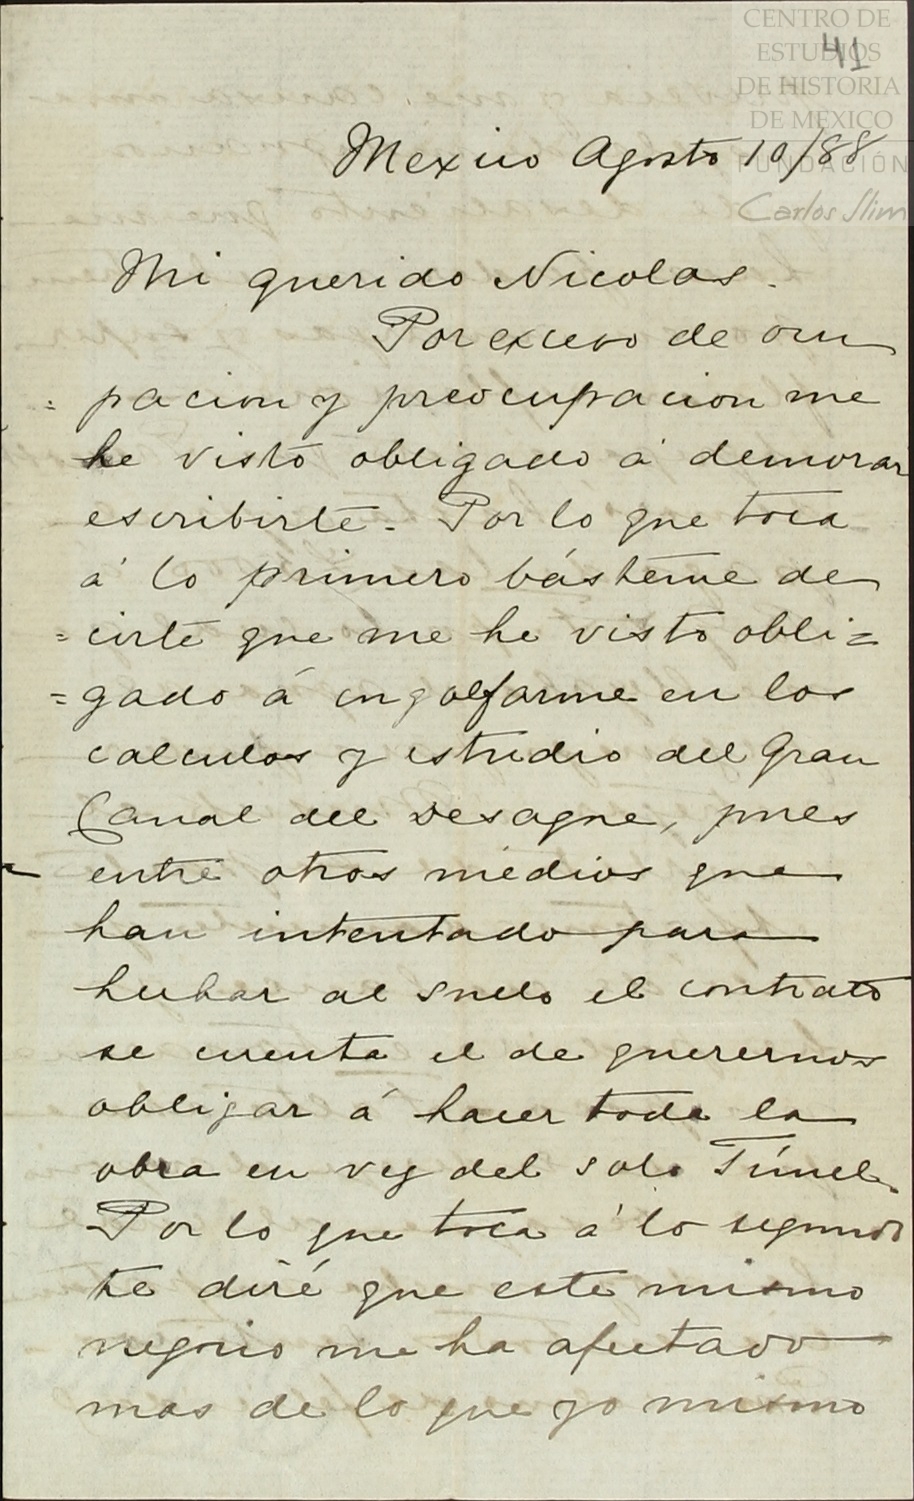 CENTRO DE
ESTUDIOS
DE HISTORIA
DE MÉXICO
FUNDACIÓN
Carlos Slim
41
Mexico Agosto 10/88
Mi querido Nicolas.
Por exceso de ocu
=pacion y preocupacion me
he visto obligado á demorar
escribirte. Por lo que toca
á lo primero básteme de
=cirte que me he visto obli=
=gado á engolfarme en los
calculos y estudio del Gran
Canal del Desague, pues
entre otros medios que
han intentado para
hechar al suelo el contrato
se cuenta el de querernos
obligar á hacer toda la
obra en vez del solo Túnel.
Por lo que toca á lo segundo
te diré que este mismo
negocio me ha afectado
mas de lo que yo mismo